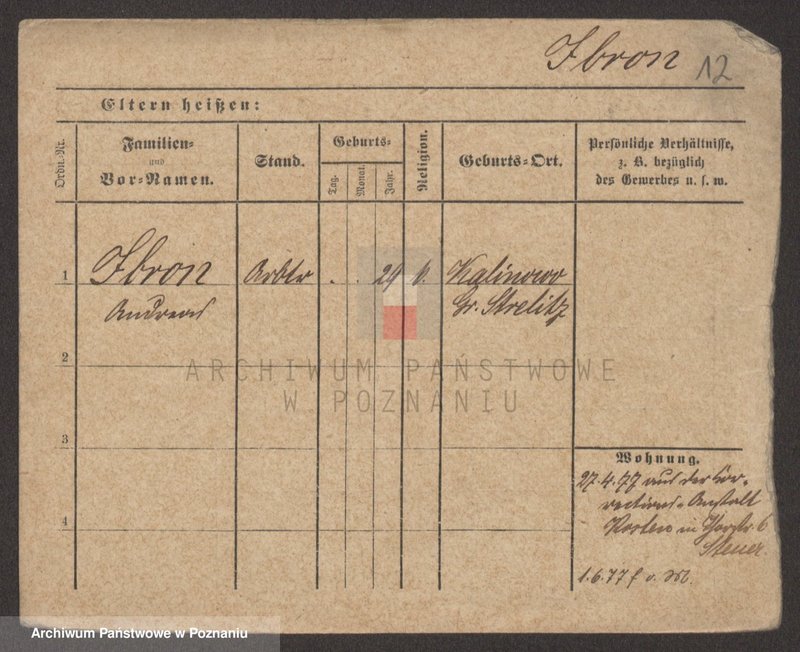 Ibron 12
Eltern heißen:
Ordn.-Nr.
Familien-
und
Vor-Namen.
Stand.
Geburts-
Tag.
Monat.
Jahr.
Religion.
Geburts-Ort.
Persönliche Verhältnisse,
z. B. bezüglich
des Gewerbes u. s. w.
1 Ibron Arbtr . . 24 k. Kalinowo
Andreas Gr. Strelitz
2
3
4
Wohnung.
27.4.77 aus der Cor-
rections-Anstalt
Kosten in
1.6.77 f v. M.
ARCHIWUM PAŃSTWOWE
W POZNANIU
Archiwum Państwowe w Poznaniu